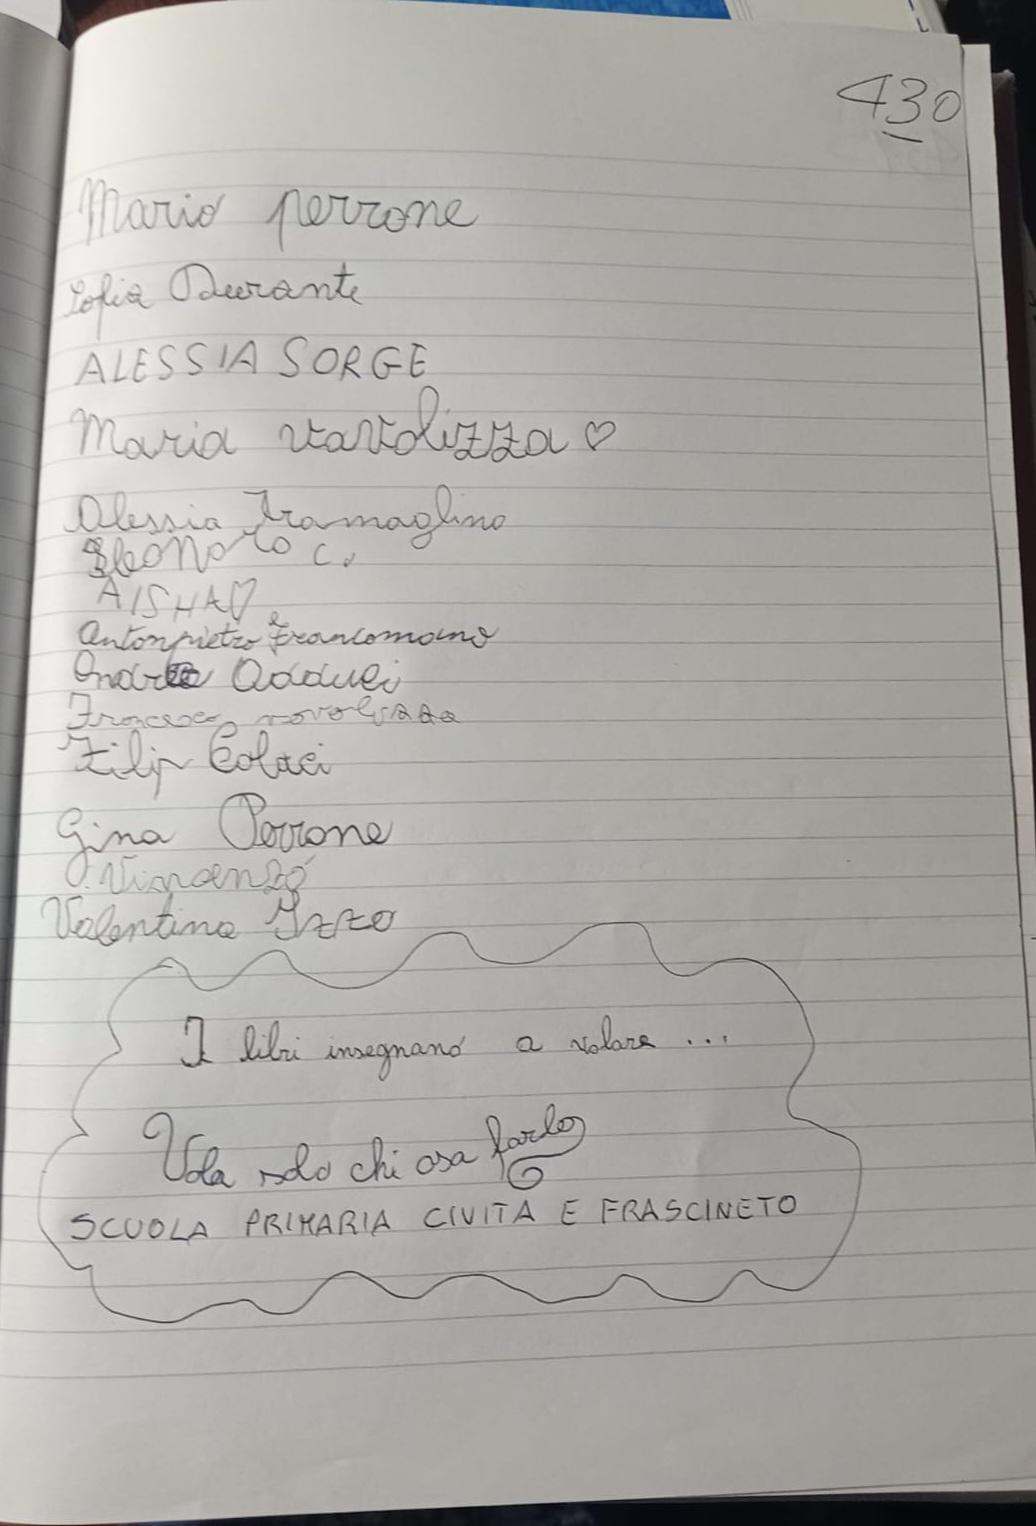 430
Mario perrone
Sofia Durante
ALESSIA SORGE
Maria vavolizza ♡
Alessia Tramaglino
Eleonora C.
AISHA♡
Antonpietro Francomano
Andrea Adduci
Francesco
Filip Colaci
Gina Perrone
Valentina Izzo
I libri insegnano a volare ...
Vola solo chi osa farlo
SCUOLA PRIMARIA CIVITA E FRASCINETO